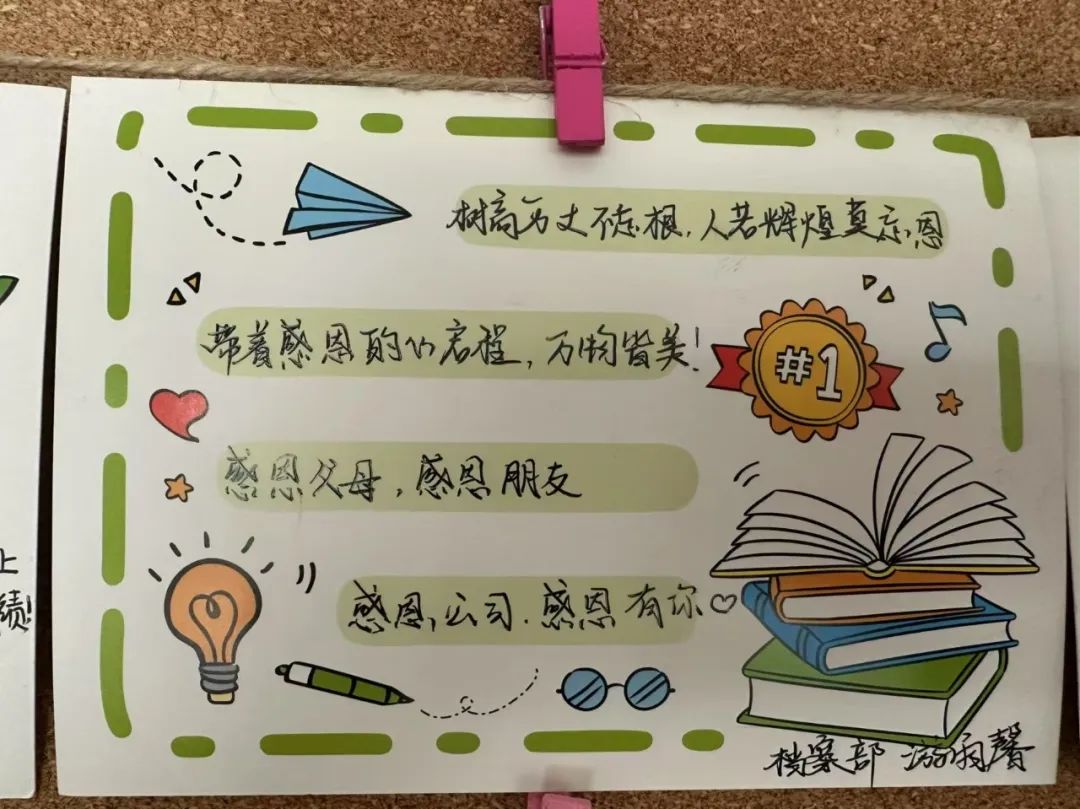 树高万丈不忘根,人若辉煌莫忘恩
#1
带着感恩的心启程,万物皆美!
感恩父母,感恩朋友
感恩公司.感恩有你♡
档案部 游雨馨
上
绩!